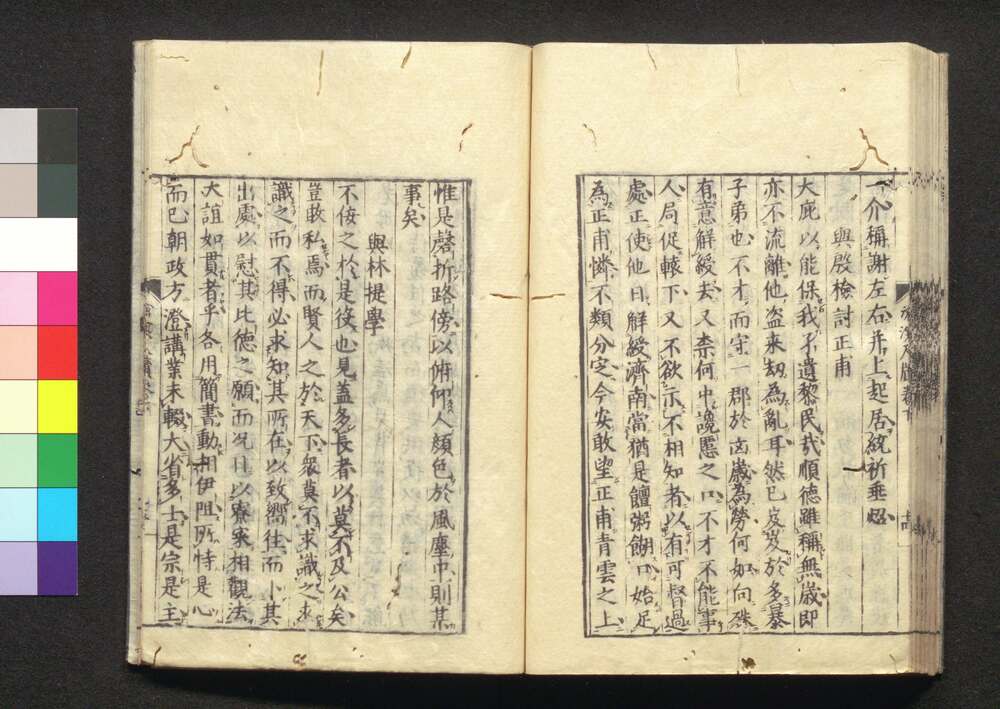 一介稱謝左右并上起居統祈垂炤
與殷檢討正甫
大庇以能保我孑遺黎民哉順德雖稱無歲即
亦不流離他盜来劫為亂耳然已岌岌於多暴
子弟也不才而守一郡於凶歲為勞何如向殊
有意解綬去又柰何中讒慝之口不才不能事
人局促轅下又不欲示不相知者以有可督過
處正使他日解綬濟南當猶是饘粥餬口始足
為正甫憐不類分定今安敢望正甫青雲之上
惟是磬折路傍以俯仰人顏色於風塵中則某
事矣
與林提學
不佞之於是役也見盖多長者以莫不及公矣
豈敢私焉而賢人之於天下衆莫不求識之求
識之而不得必求知其所在以致嚮往而卜其
出處以慰其比德之願而况日以寮寀相觀法
大誼如貫者乎各用簡書動相伊阻所恃是心
而已朝政方澄講業未輟大省多士是宗是主